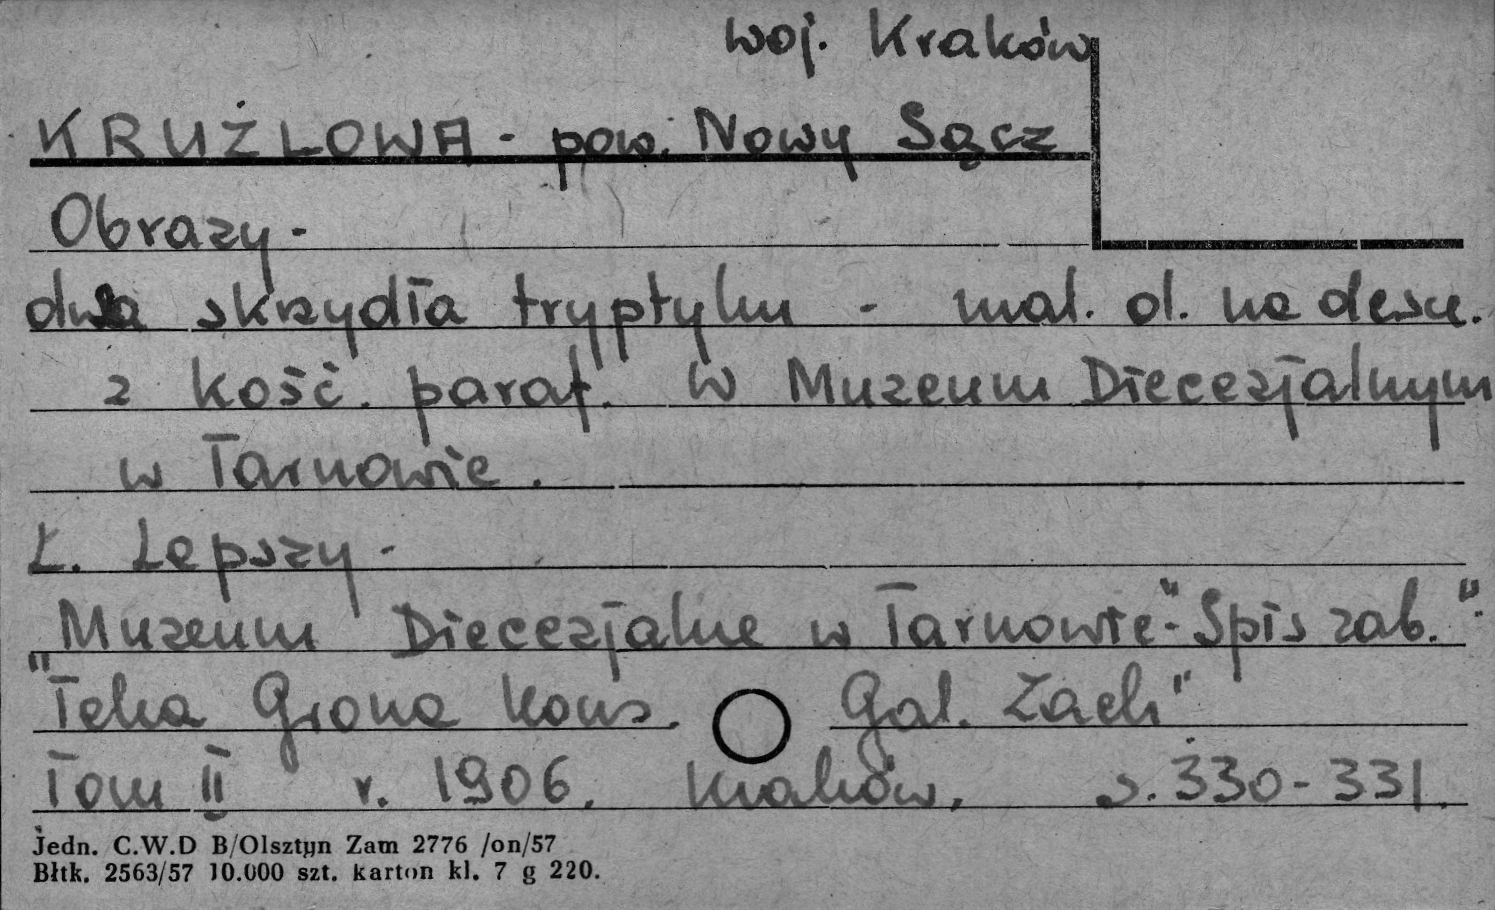 woj. Kraków
KRUŻLOWA - pow. Nowy Sącz
Obrazy -
dwa skrzydła tryptyku - mal. ol. na desce.
z kość. paraf. w Muzeum Diecezjalnym
w Tarnowie.
Ł. Lepszy -
Muzeum Diecezjalne w Tarnowie" - Spis zab."
"Teka Grona Kons. Gal. Zach"
Tom II r. 1906. Kraków, s. 330-331.
Jedn. C.W.D B/Olsztyn Zam 2776 /on/57
Błtk. 2563/57 10.000 szt. karton kl. 7 g 220.